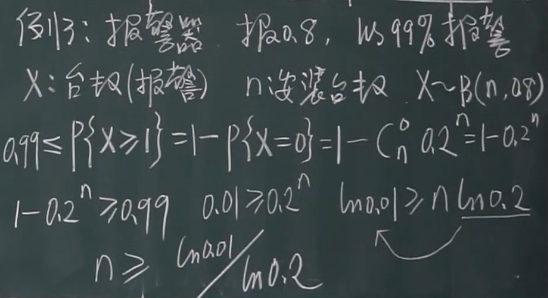 例3：报警器 报0.8, 以99%报警
X：台数(报警) n：安装台数 X~B(n,0.8)
0.99≤P{X≥1}=1-P{X=0}=1-C_n^0 0.2^n=1-0.2^n
1-0.2^n≥0.99 0.01≥0.2^n ln0.01≥nln0.2
n≥ln0.01/ln0.2